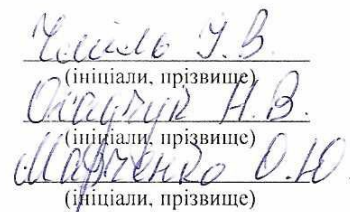 У. В.
(ініціали, прізвище)
Н. В.
(ініціали, прізвище)
Марченко О. Ю.
(ініціали, прізвище)